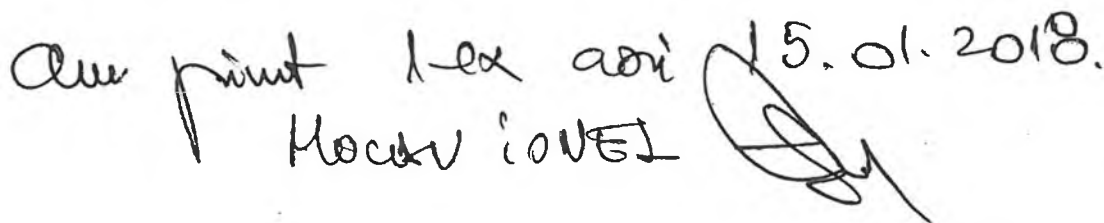 Am primit 1 ex azi 15.01.2018.
Mocan IONEL